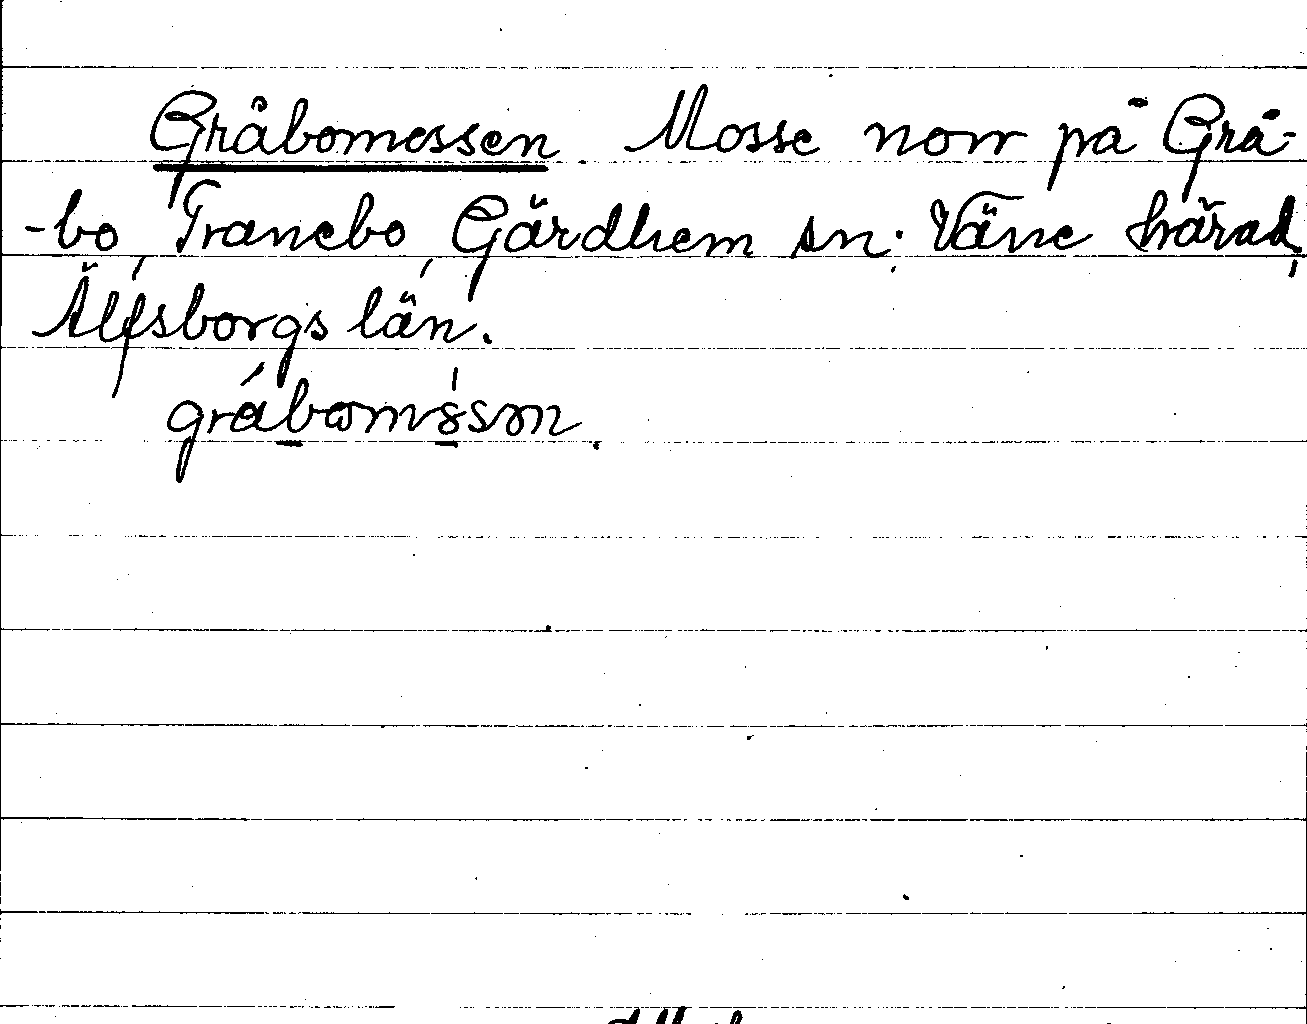 Gråbomossen. Mosse norr på Grå-
-bo, Tranebo, Gärdhem sn. Väne härad,
Älfsborgs län.